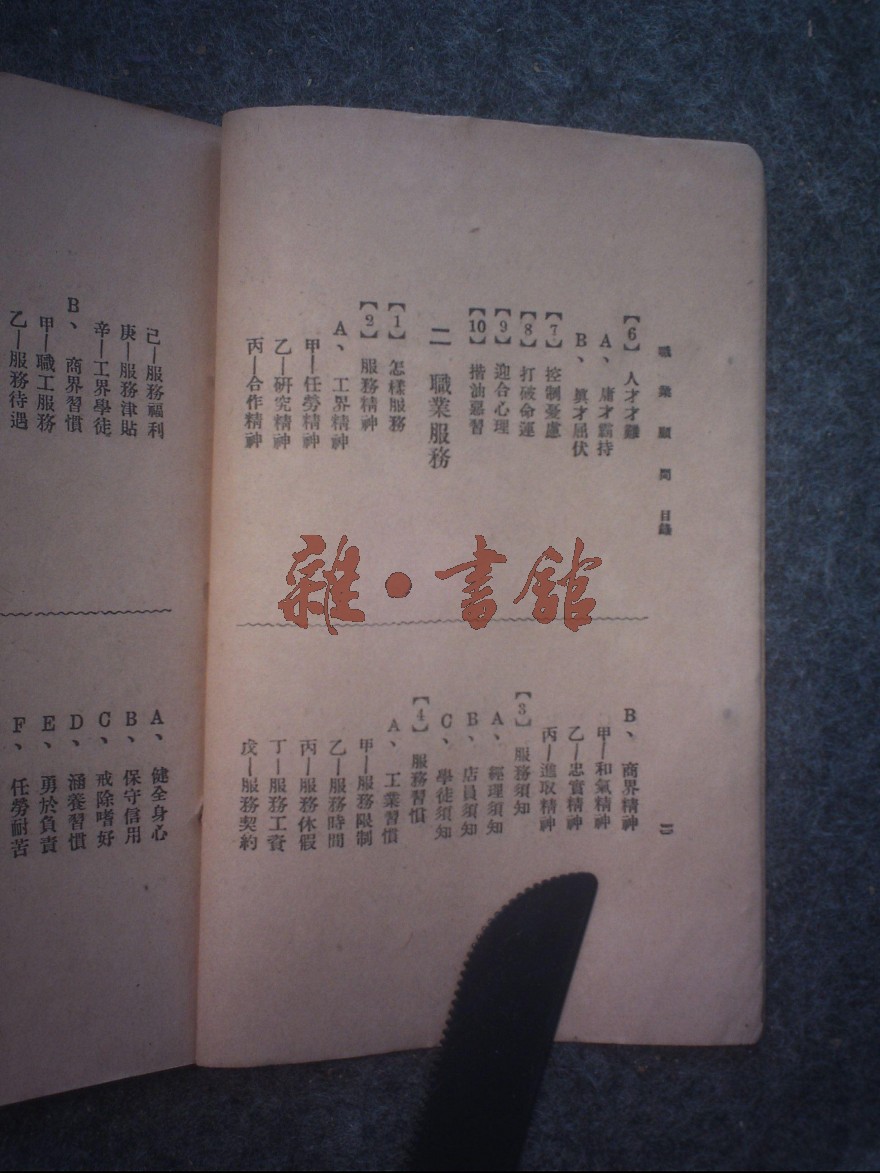 職業顧問 目錄
二
【6】人才才難
A、庸才霸持
B、眞才屈伏
【7】控制憂慮
【8】打破命運
【9】迎合心理
【10】揩油惡習
二 職業服務
【1】怎樣服務
【2】服務精神
A、工界精神
甲—任勞精神
乙—研究精神
丙—合作精神
B、商界精神
甲—和氣精神
乙—忠實精神
丙—進取精神
【3】服務須知
A、經理須知
B、店員須知
C、學徒須知
【4】服務習慣
A、工業習慣
甲—服務限制
乙—服務時間
丙—服務休假
丁—服務工資
戊—服務契約
己—服務福利
庚—服務津貼
辛—工界學徒
B、商界習慣
甲—職工服務
乙—服務待遇
A、健全身心
B、保守信用
C、戒除嗜好
D、涵養習慣
E、勇於負責
F、任勞耐苦
雜·書館